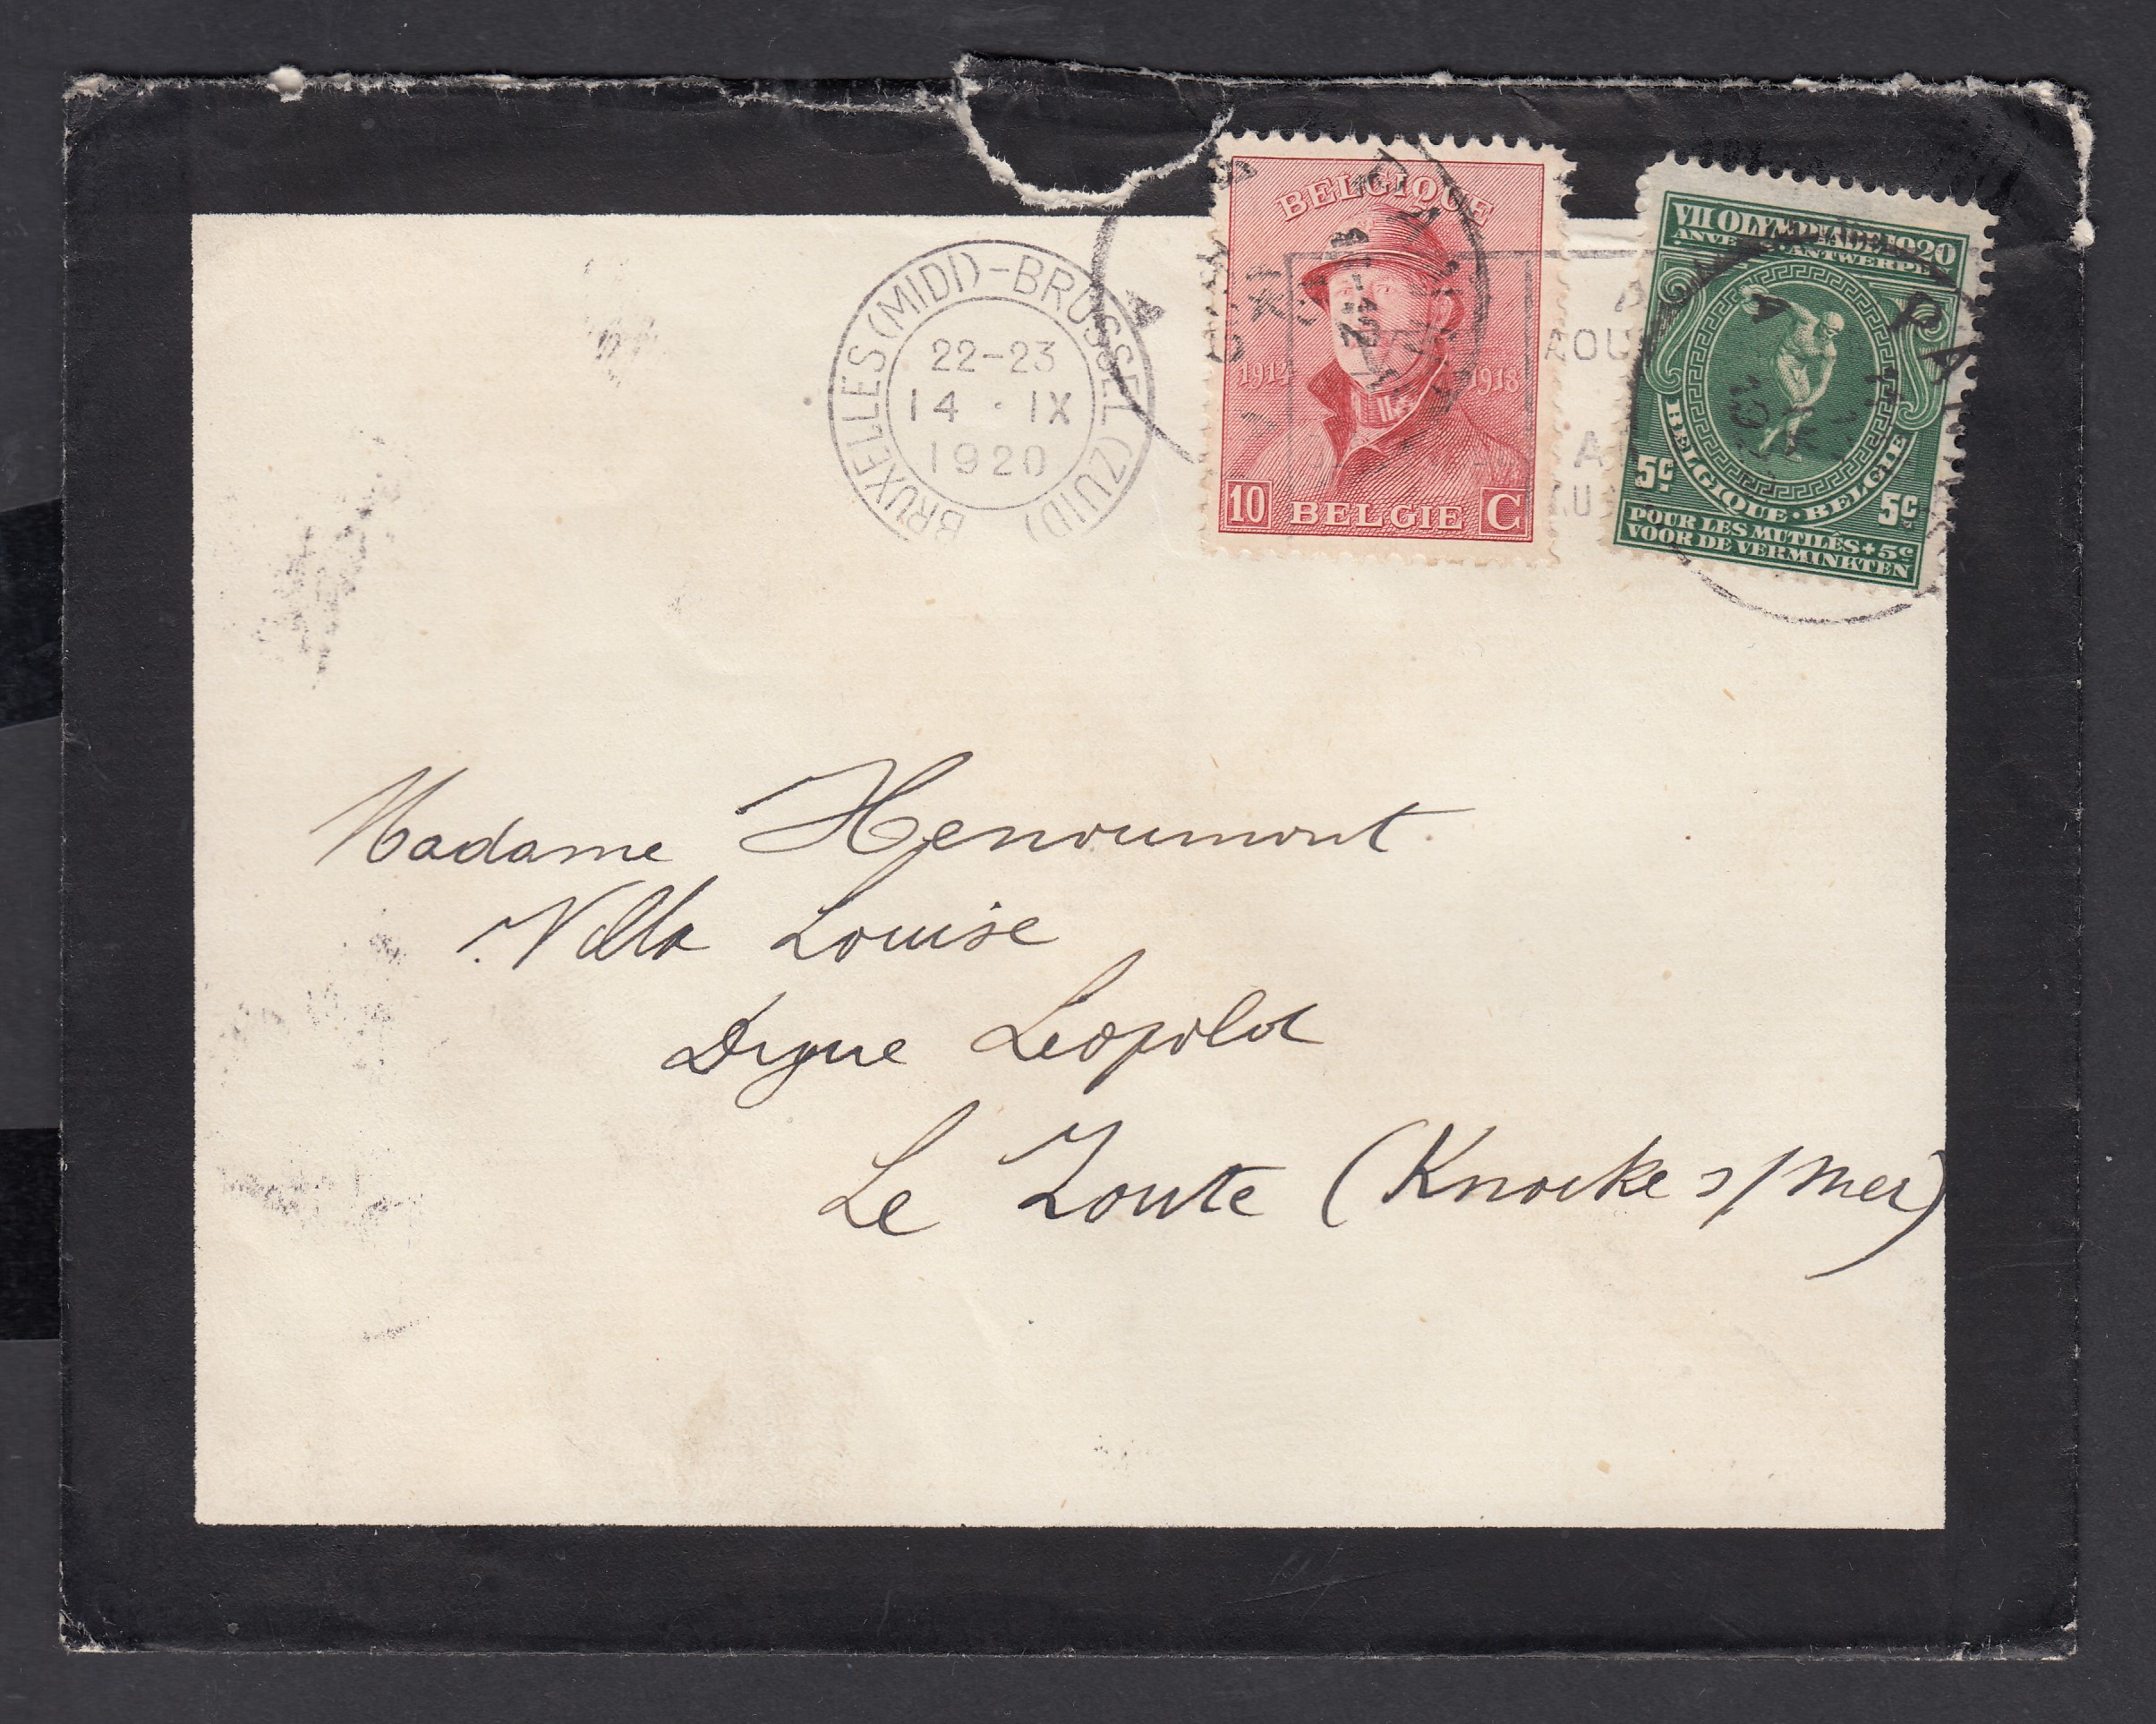 BRUXELLES (MIDI)-BRUSSEL (ZUID)
22-23
14 · IX
1920
BELGIQUE
1914 1918
10 BELGIE C
VII OLYMPIADE 1920
ANVERS ANTWERPEN
BELGIQUE · BELGIE
5c 5c
POUR LES MUTILÉS + 5c
VOOR DE VERMINKTEN
Madame Henoumont.
Villa Louise
Digue Léopold
Le Zoute (Knocke s/mer)